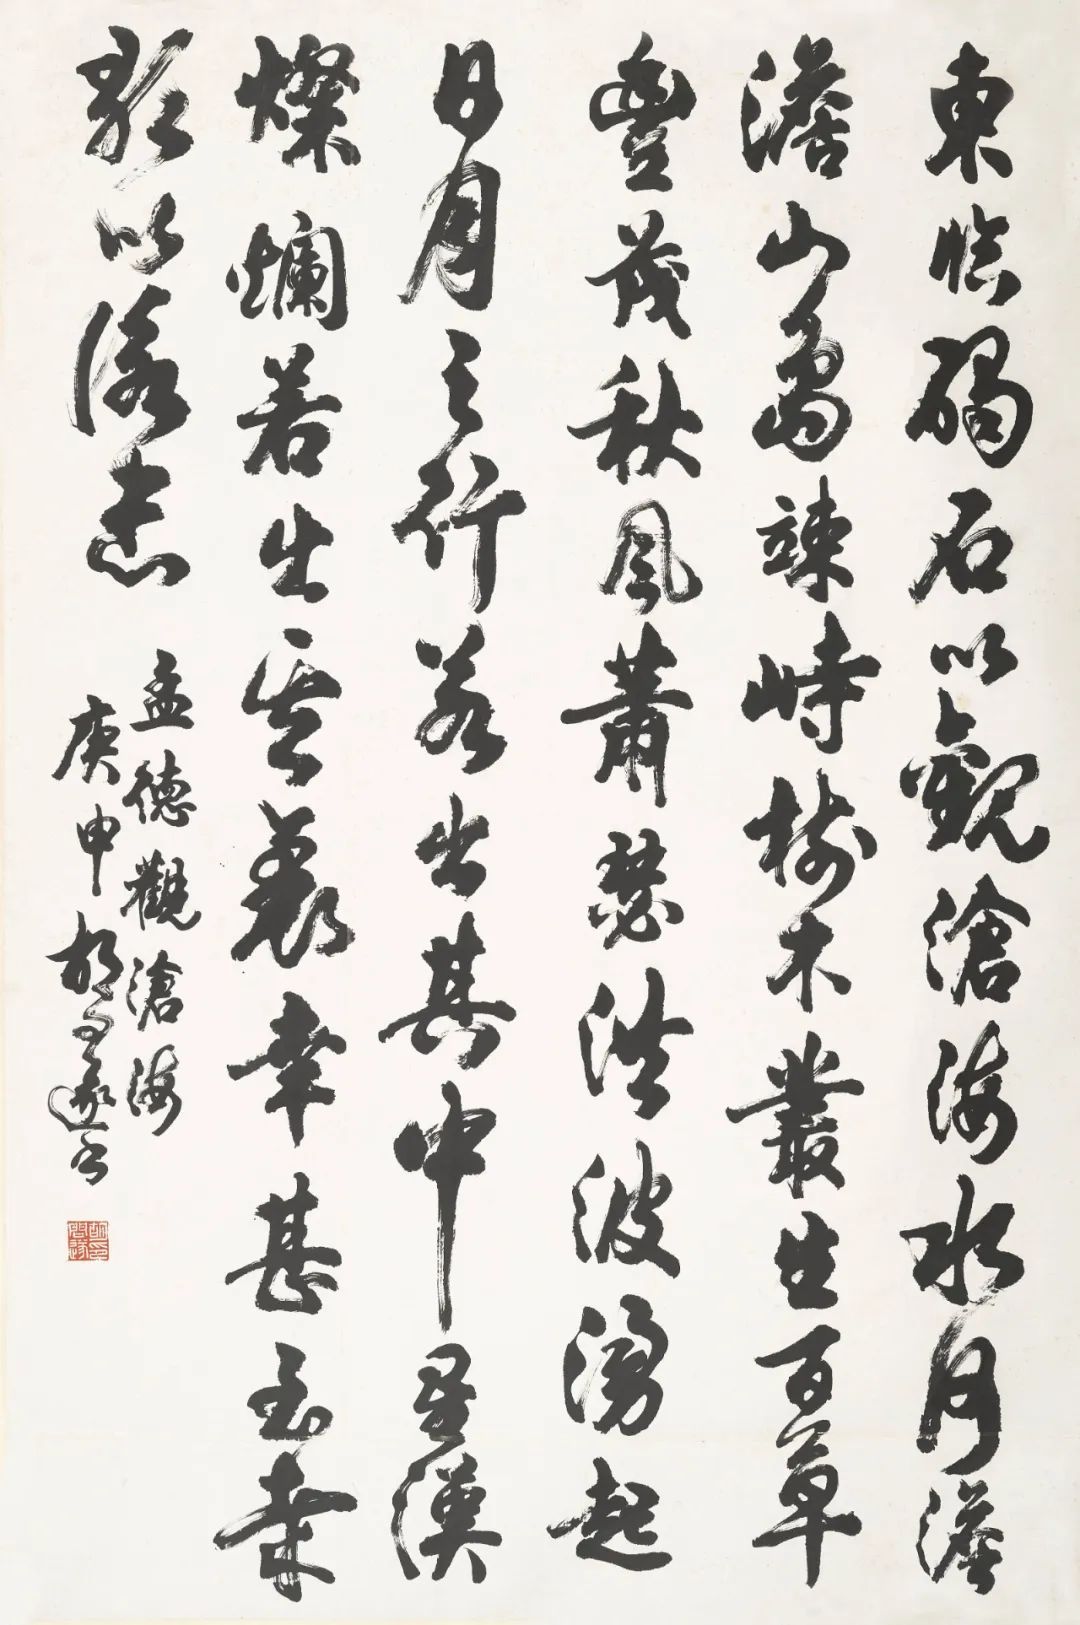 東臨碣石以觀滄海水何澹
澹山島竦峙樹木叢生百草
豐茂秋風蕭瑟洪波湧起
日月之行若出其中星漢
燦爛若出其裏幸甚至哉
歌以詠志
孟德觀滄海
庚申胡問遂書
胡印問遂